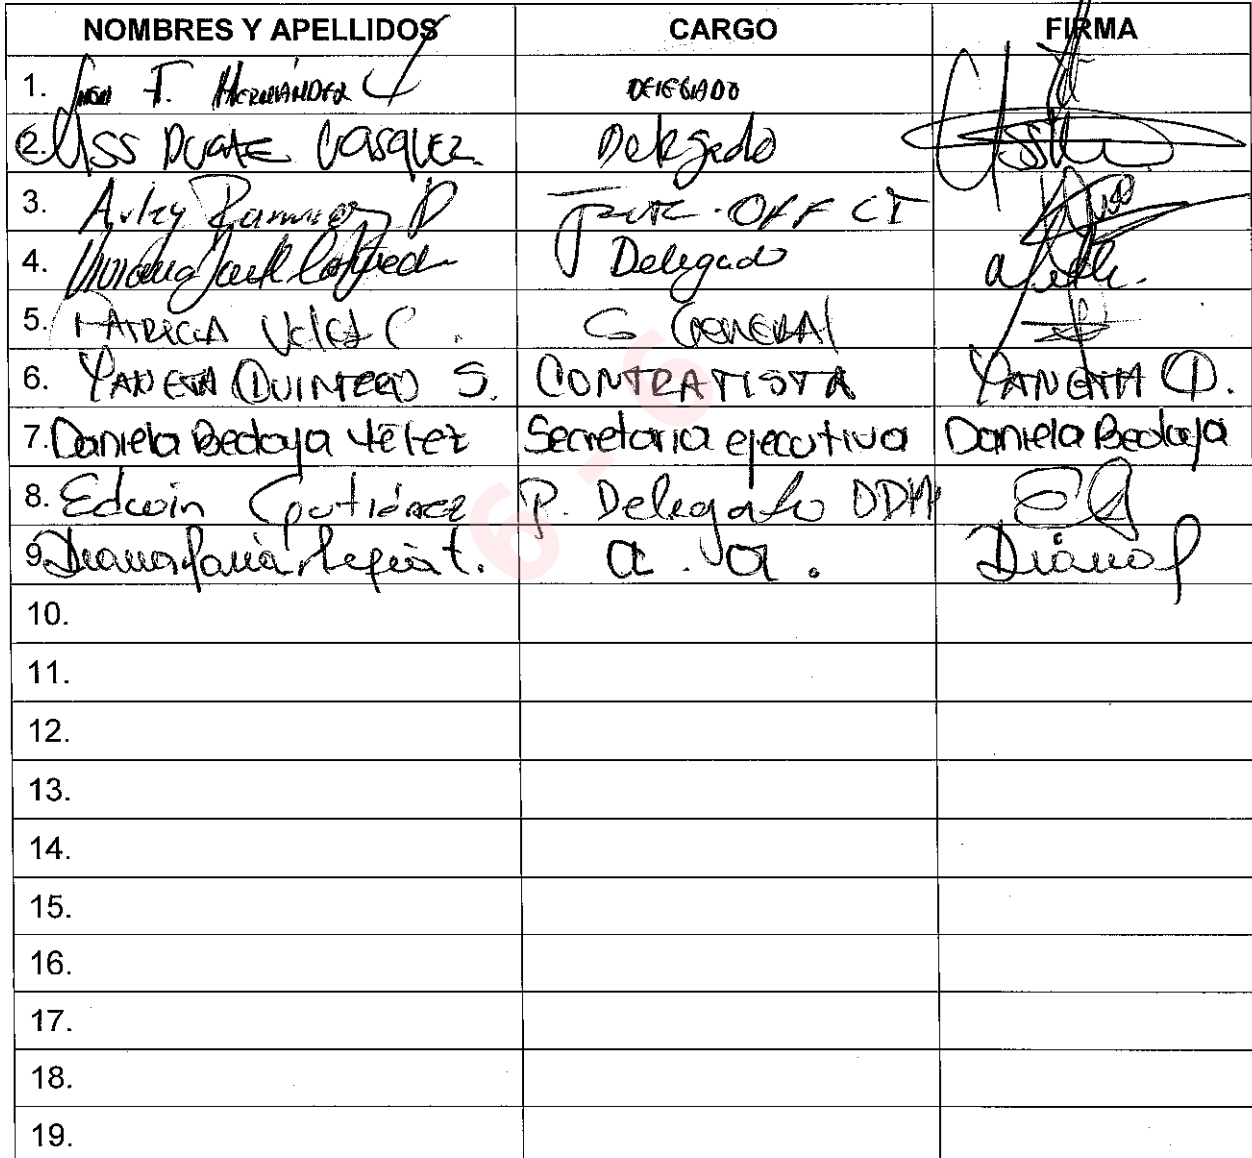 NOMBRES Y APELLIDOS CARGO FIRMA
1. T. HERNÁNDEZ DELEGADO
2. VASQUEZ Delegado
3. Ramirez
4. Delegado
5. PATRICIA Velez C. S GENERAL
6. YANETH QUINTERO S. CONTRATISTA YANETH Q.
7. Daniela Bedoya Vélez Secretaria ejecutiva Daniela Bedoya
8. Edwin Gutiérrez P. Delegado DDHH EG
9. Diana a. a. Diana
10.
11.
12.
13.
14.
15.
16.
17.
18.
19.
6 - 6